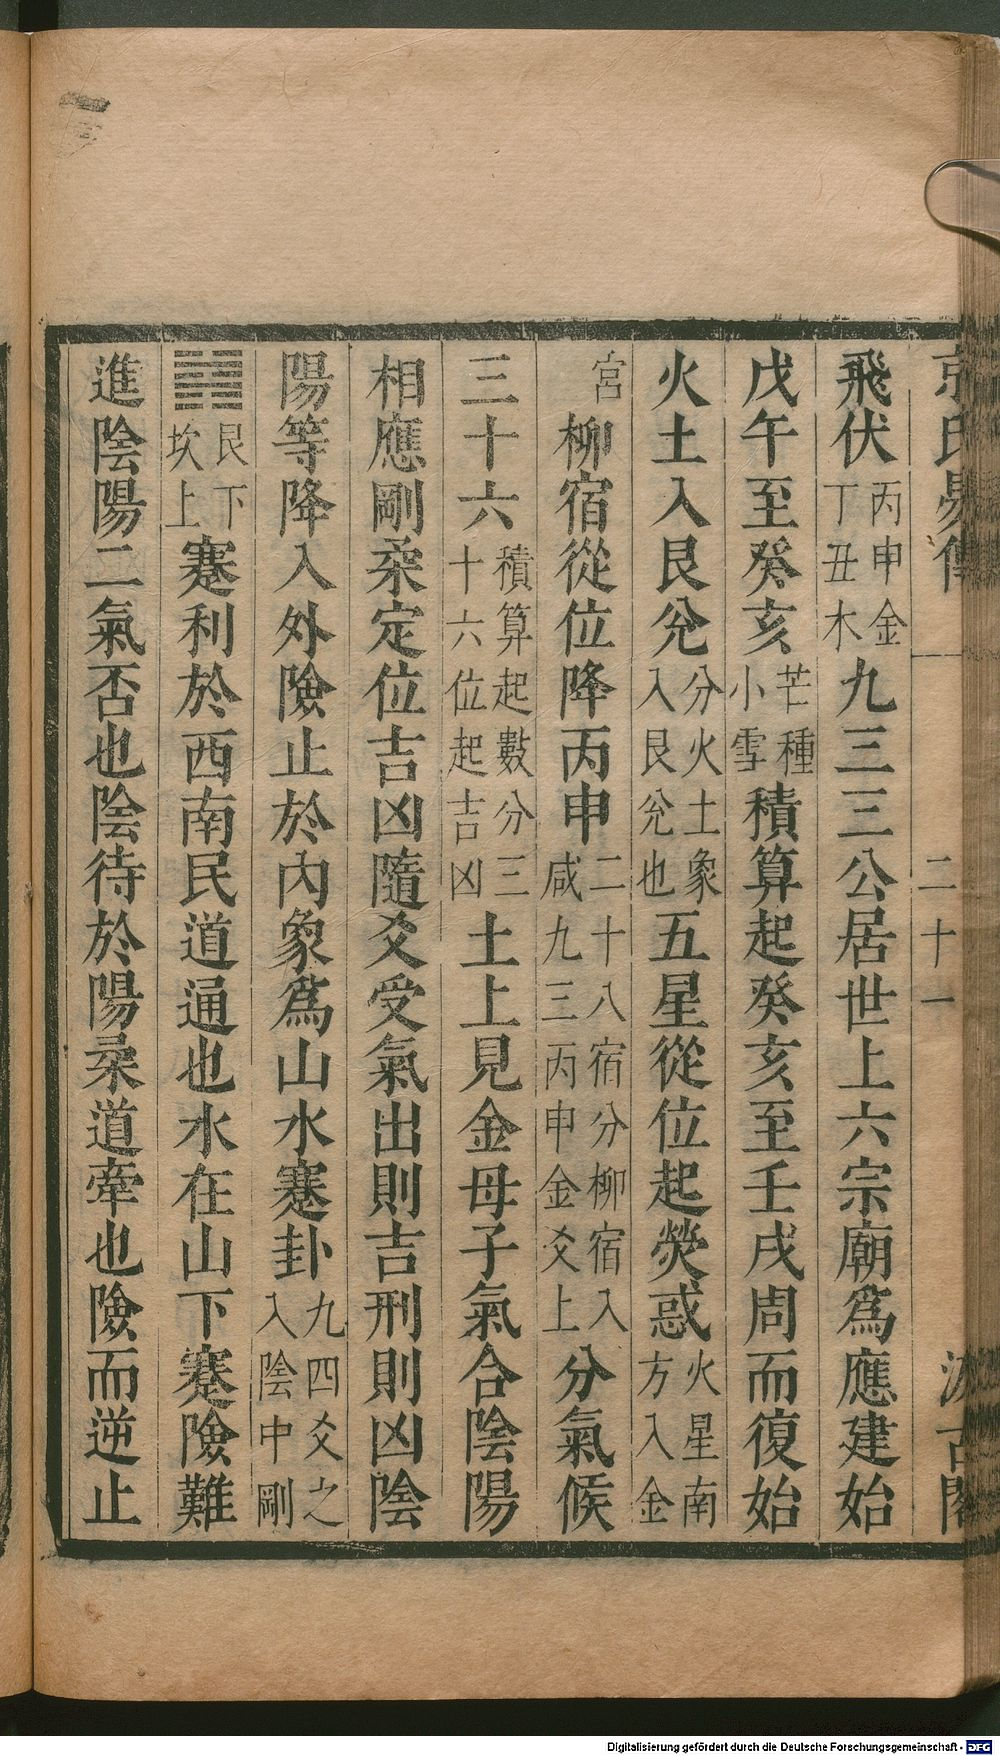 京氏易傳 二十一 汲古閣
飛伏丙申金丁丑木九三三公居世上六宗廟爲應建始
戊午至癸亥芒種小雪積算起癸亥至壬戌周而復始
火土入艮兊分火土象入艮兊也五星從位起熒惑火星南方入金
宮柳宿從位降丙申二十八宿分柳宿入咸九三丙申金爻上分氣候
三十六積算起數分三十六位起吉凶土上見金母子氣合陰陽
相應剛柔定位吉凶隨爻受氣出則吉刑則凶陰
陽等降入外險止於內象爲山水蹇卦九四爻之入陰中剛
䷦艮下坎上蹇利於西南民道通也水在山下蹇險難
進陰陽二氣否也陰待於陽柔道牽也險而逆止
Digitalisierung gefördert durch die Deutsche Forschungsgemeinschaft - DFG